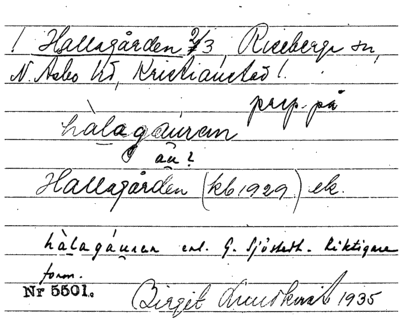 ! Hallagården 2/3, Riseberga sn,
N. Åsbo hd, Kristianstad l.
prep. på
hàlagáuran
áu?
Hallagården (kb 1929) ek.
hàlagáuran enl. G. Sjöstedt. Riktigare
form.
Nr 5501.
Birgit 1935